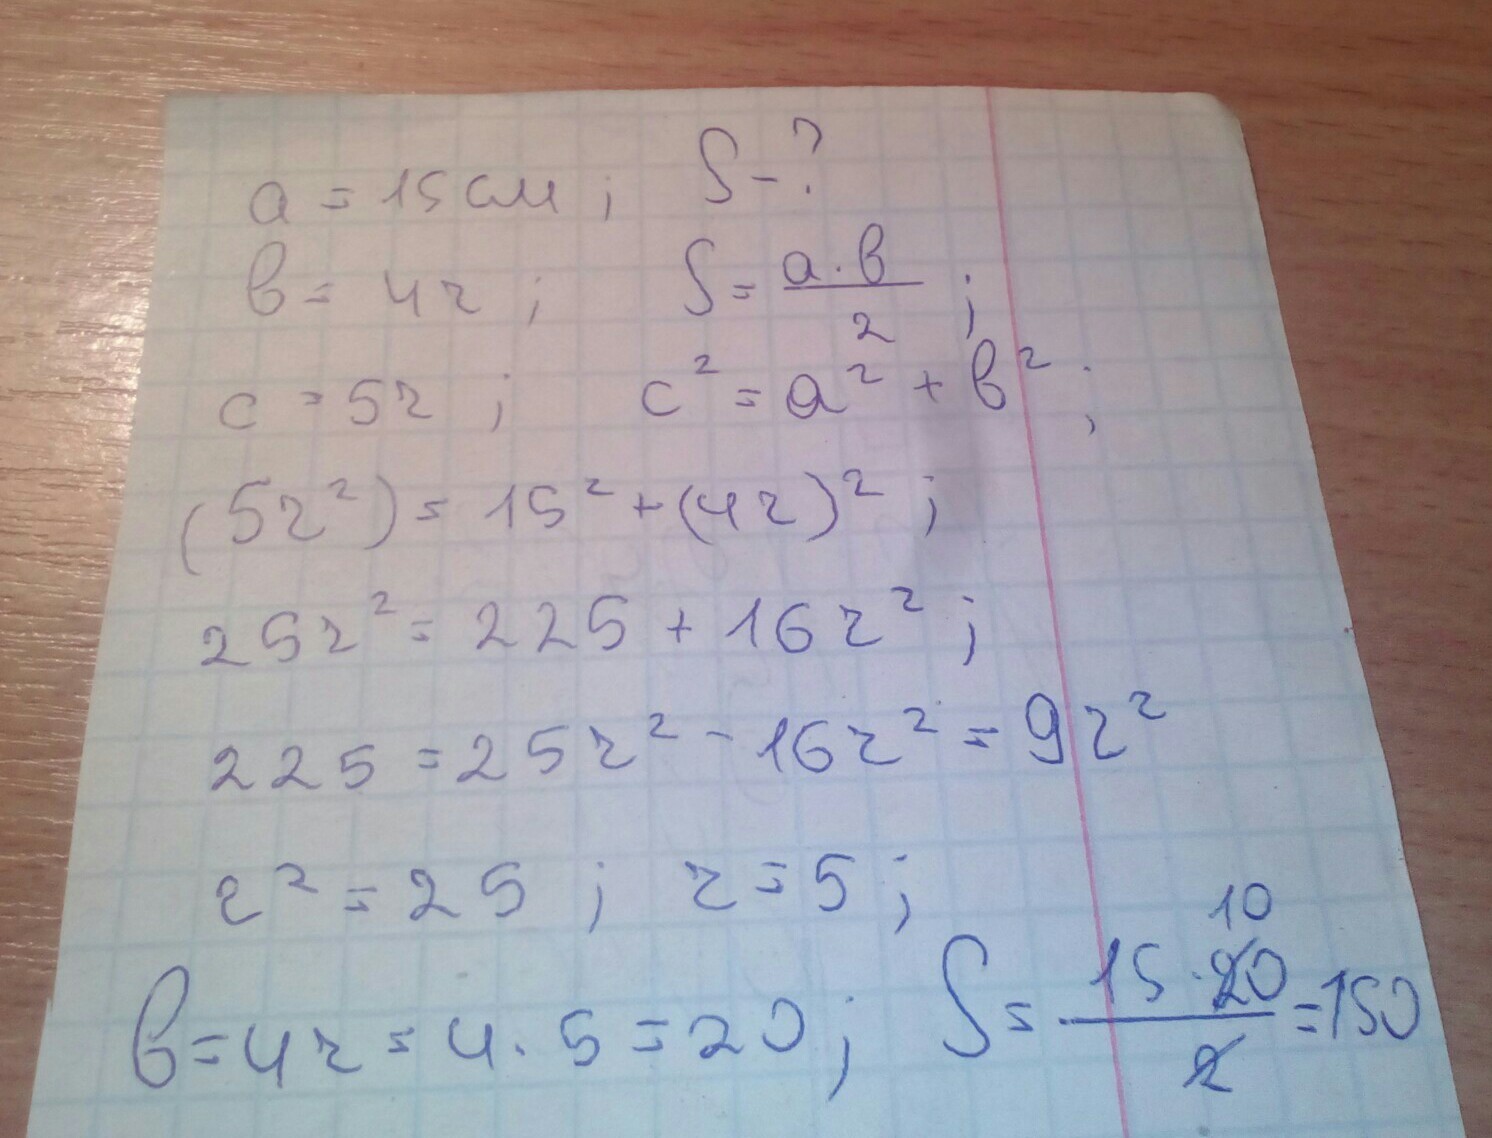 a = 15 см ; S - ?
в = 4r ; S = a·в/2 ;
c = 5r ; c² = a² + в² ;
(5r²) = 15² + (4r)² ;
25r² = 225 + 16r² ;
225 = 25r² - 16r² = 9r²
r² = 25 ; r = 5 ;
в = 4r = 4 · 5 = 20 ; S = 15 · 20/2 = 150
10